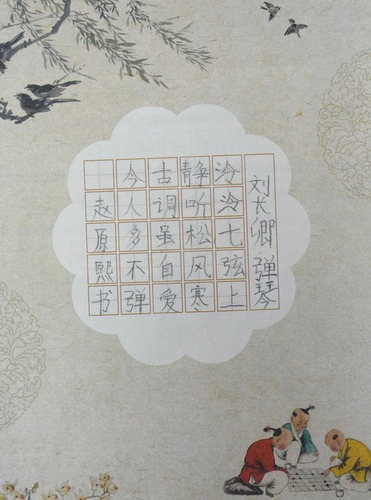 刘长卿弹琴
泠泠七弦上
静听松风寒
古调虽自爱
今人多不弹
赵原熙书